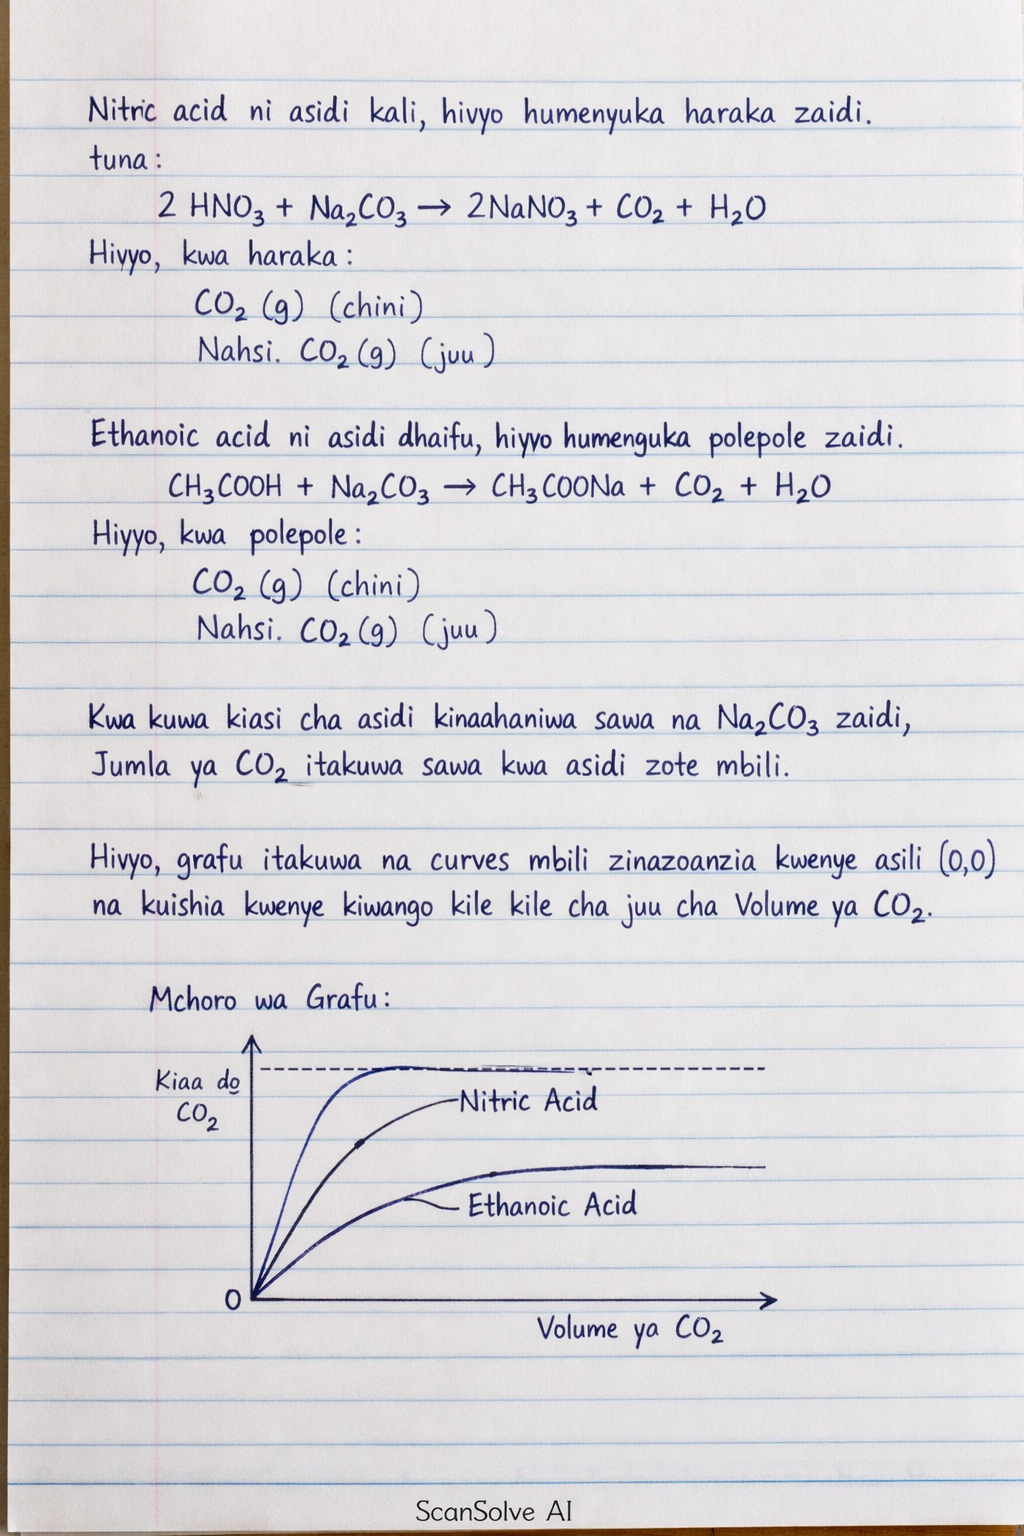 Nitric acid ni asidi kali, hivyo humenyuka haraka zaidi.
tuna:
2 HNO₃ + Na₂CO₃ → 2NaNO₃ + CO₂ + H₂O
Hivyo, kwa haraka:
CO₂ (g) (chini)
Nahsi. CO₂ (g) (juu)
Ethanoic acid ni asidi dhaifu, hiyyo humenguka polepole zaidi.
CH₃COOH + Na₂CO₃ → CH₃COONa + CO₂ + H₂O
Hiyyo, kwa polepole:
CO₂ (g) (chini)
Nahsi. CO₂ (g) (juu)
Kwa kuwa kiasi cha asidi kinaahaniwa sawa na Na₂CO₃ zaidi,
Jumla ya CO₂ itakuwa sawa kwa asidi zote mbili.
Hivyo, grafu itakuwa na curves mbili zinazoanzia kwenye asili (0,0)
na kuishia kwenye kiwango kile kile cha juu cha Volume ya CO₂.
Mchoro wa Grafu:
Kiaa do
CO₂
Nitric Acid
Ethanoic Acid
O
Volume ya CO₂
ScanSolve AI